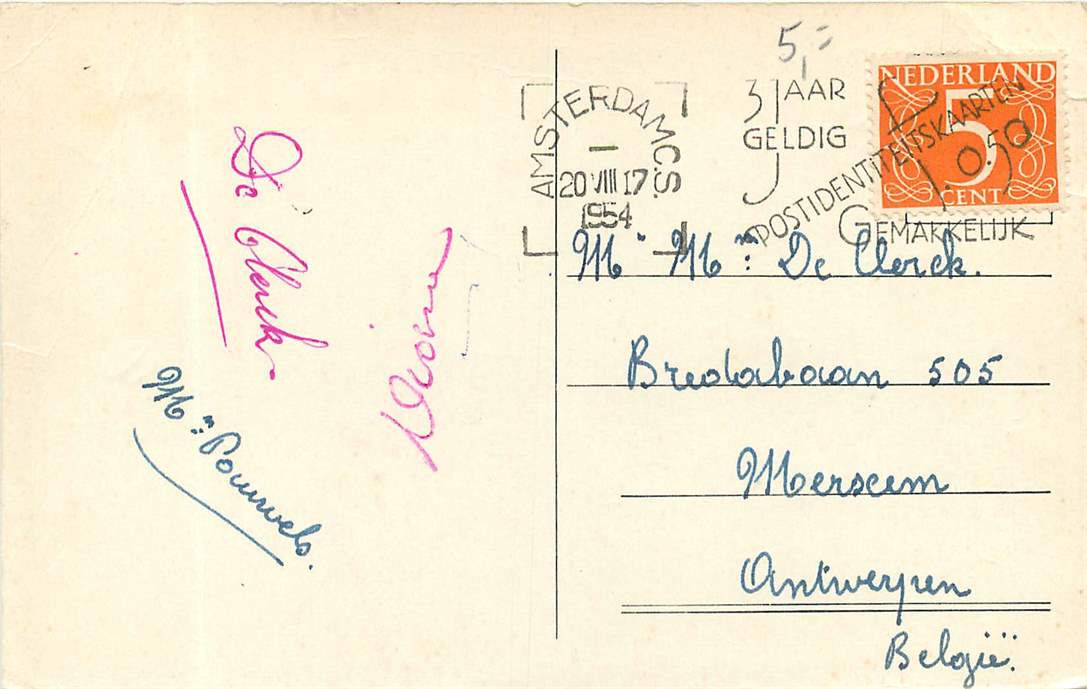 De Clerck
Mn: Pouwels.
5,=
AMSTERDAM C.S.
1
20 VIII 17
1954
3 JAAR
GELDIG
POSTIDENTITEITSKAARTEN
f. 0.50
GEMAKKELIJK
NEDERLAND
5
CENT
Mr Mn: De Clerck.
Bredabaan 505
Merxem
Antwerpen
België.